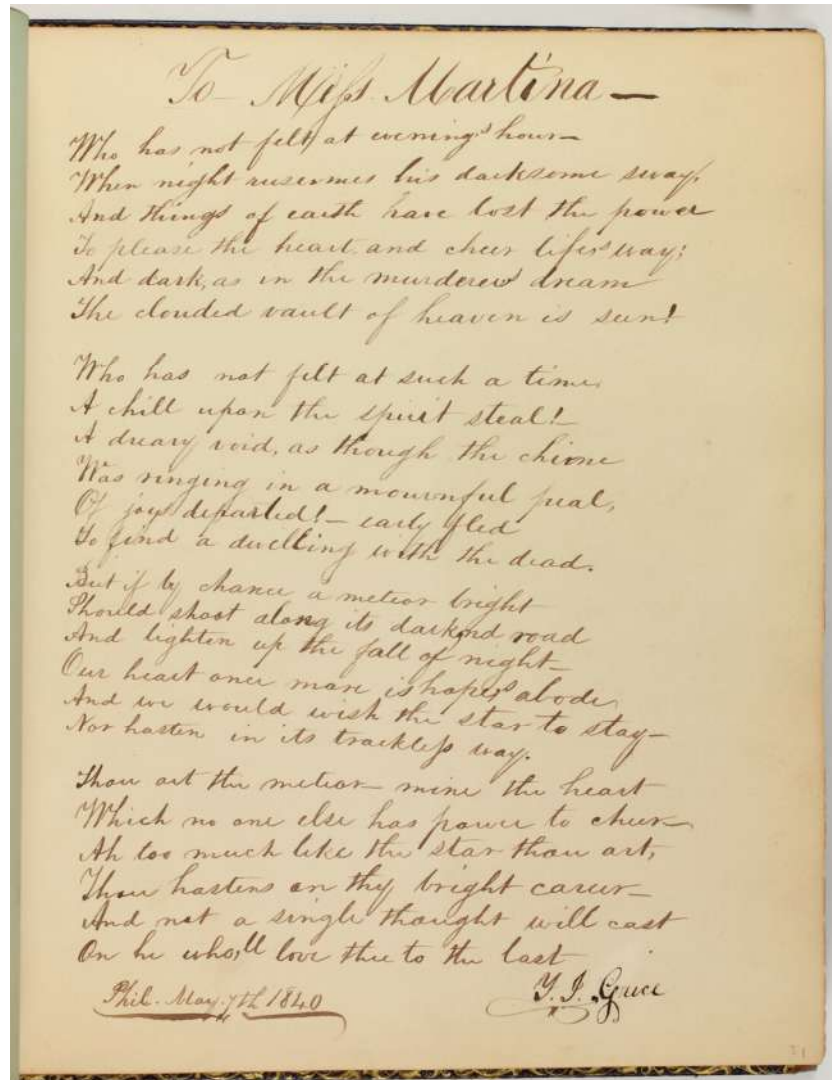 To Miss Martina —
Who has not felt, at evening's hour—
When night resumes his darksome sway,
And things of earth have lost the power
To please the heart, and cheer life's way;
And dark, as in the murderer's dream
The clouded vault of heaven is seen!
Who has not felt at such a time
A chill upon the spirit steal!—
A dreary void, as though the chime
Was ringing in a mournful peal,
Of joys departed!— early fled
To find a dwelling with the dead.
But if by chance a meteor bright
Should shoot along its dark'nd road
And lighten up the fall of night—
Our heart once more is hope's abode,
And we would wish the star to stay—
Nor hasten in its trackless way.
Thou art the meteor— mine the heart
Which no one else has power to cheer—
Ah too much like the star thou art,
Thou hastens on thy bright career—
And not a single thought will cast
On he who'll love thee to the last
Phil. May. 7th 1840
Grice